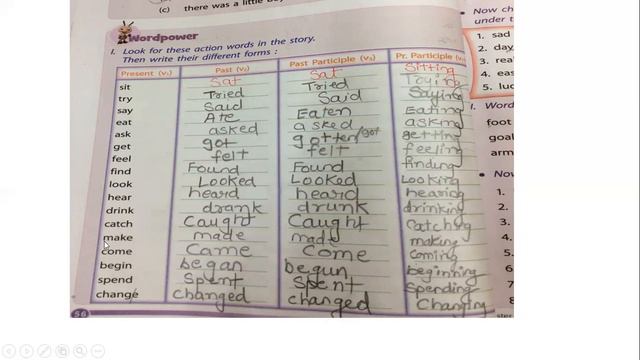 (c) there was a little bo
Wordpower
I. Look for these action words in the story.
Then write their different forms :
Present (v₁) Past (v₂) Past Participle (v₃) Pr. Participle (v₄)
sit Sat Sat Sitting
try Tried Tried Trying
say Said Said Saying
eat Ate Eaten Eating
ask asked asked asking
get got gotten/got getting
feel felt felt feeling
find Found Found finding
look Looked Looked Looking
hear heard heard hearing
drink drank drunk drinking
catch Caught Caught Catching
make made made making
come Came Come Coming
begin began begun beginning
spend Spent Spent Spending
change Changed changed Changing
56
Now ch
under t
1. sad
2. day
3. rea
4. eas
5. luc
I. Word
foot
goal
arm
Now
1.
2.
3.
4.
5.
6
7
8